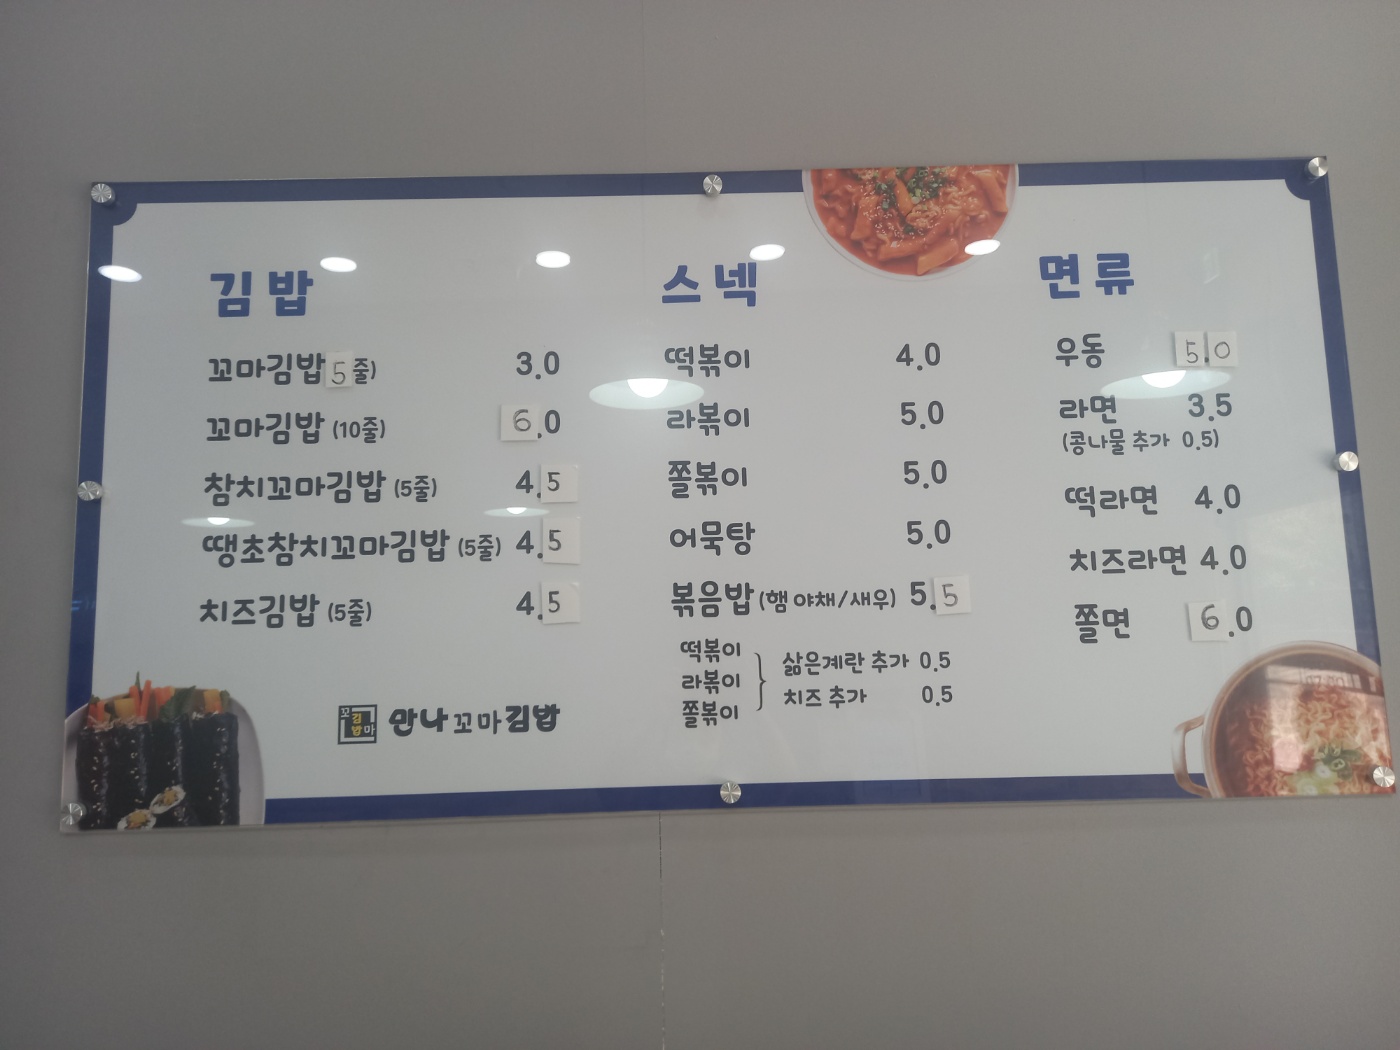 김밥
꼬마김밥 5줄) 3.0
꼬마김밥 (10줄) 6.0
참치꼬마김밥 (5줄) 4.5
땡초참치꼬마김밥 (5줄) 4.5
치즈김밥 (5줄) 4.5
꼬김밥마 만나꼬마김밥
스넥
떡볶이 4.0
라볶이 5.0
쫄볶이 5.0
어묵탕 5.0
볶음밥 (햄 야채/새우) 5.5
떡볶이
라볶이
쫄볶이
삶은계란 추가 0.5
치즈 추가 0.5
면류
우동 5.0
라면 3.5
(콩나물 추가 0.5)
떡라면 4.0
치즈라면 4.0
쫄면 6.0